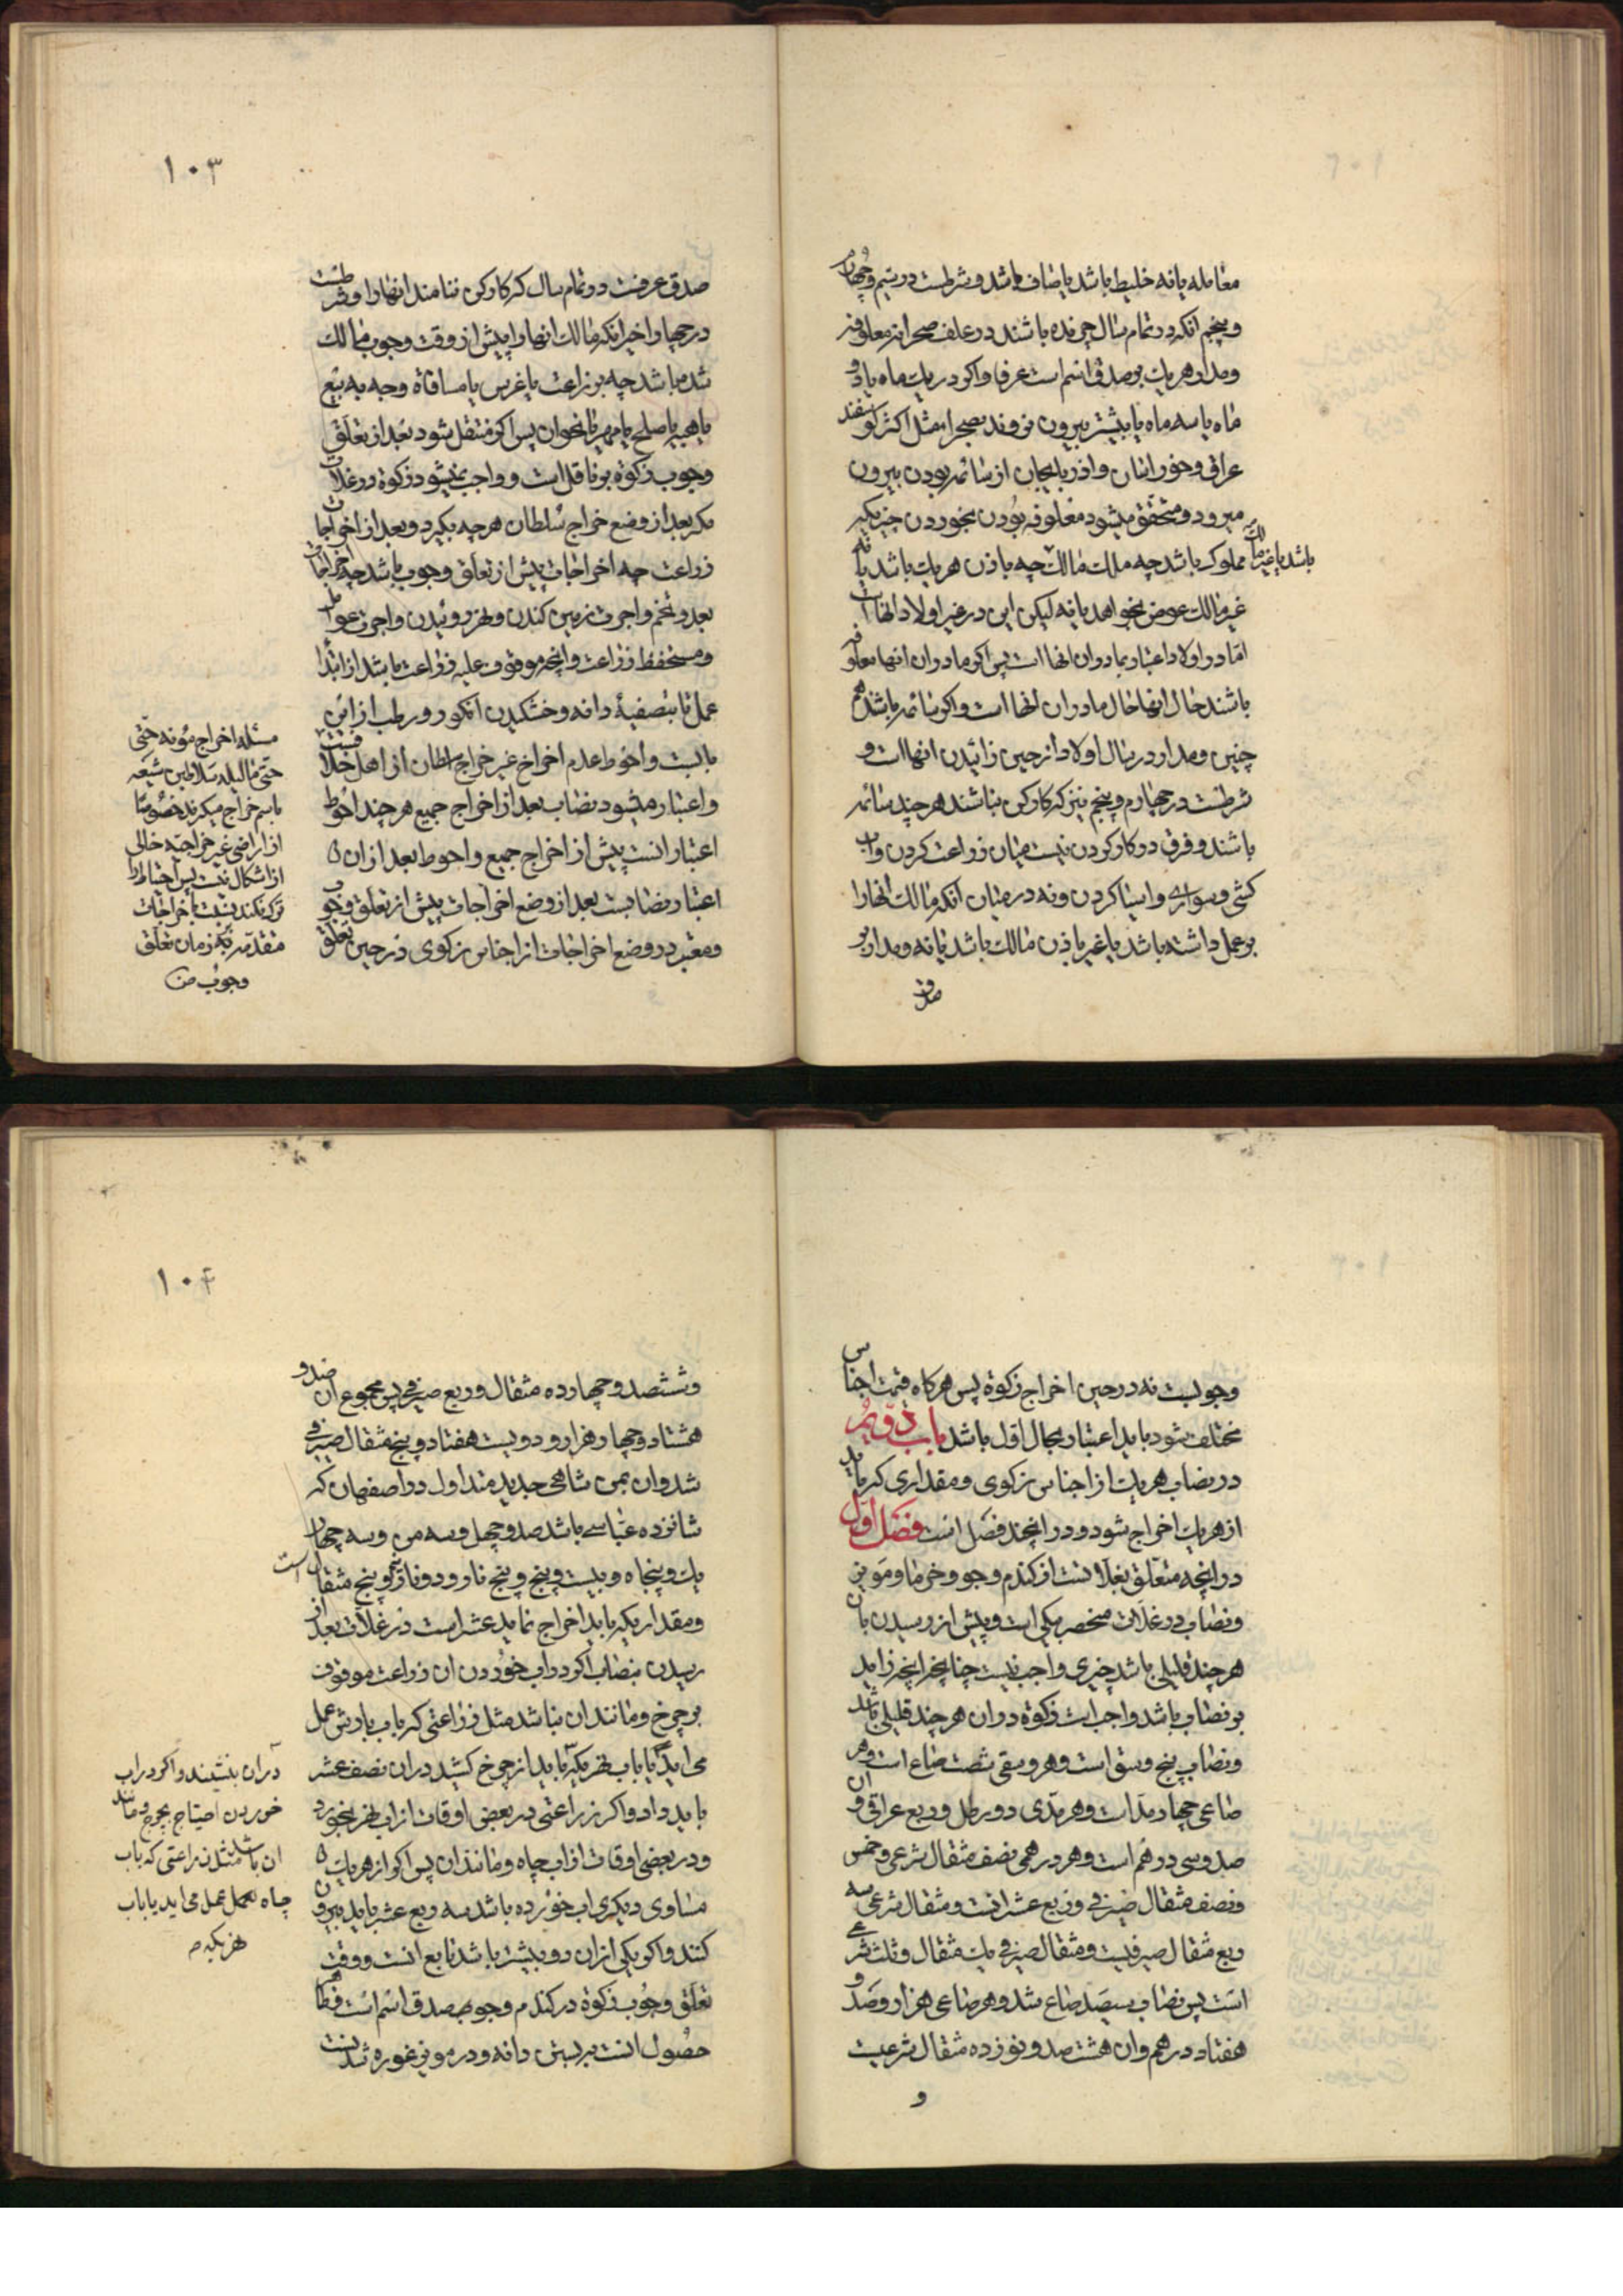 معامله یا نه خلیط باشد یا صاف باشد و شرطست در سیم و چهارم
و پنجم آنکه در تمام سال چرنده باشند در علف صحرا نه معلوفه
و مدار هر یک بر صدق اسم است عرفا و اکر در یک ماه یا دو
ماه یا سه ماه یا بیشتر بیرون نروند بصحرا مثل اکثر کوسفند
عراق و خوراسان و اذربایجان از سائمه بودن بیرون
میرود و متحقق میشود معلوفه بودن بخوردن چیزیکه
مملوک باشد چه ملک مالک چه باذن هر یک باشد یا نه
باشد یا غیر مالک
غیر مالک عوض بخواهد یا نه لیکن این در غیر اولاد انها است
امّا در اولاد اعتبار بمادران انها است پس اکر مادران انها معلوفه
باشند حال انها حال مادران انها است و اکر سائمه باشند هم
چنین و مدار در سال اولاد از حین زائیدن انها است و
شرطست در چهارم و پنجم نیز که کارکن نباشند هر چند سائمه
باشند و فرق در کار کردن نیست میان زراعت کردن و اب
کشی و سواری و اسیا کردن و نه در میان آنکه مالک انها را
بر عمل داشته باشد یا غیر باذن مالک باشد یا نه و مدار بر
صدق
۱۰۳
صدق عرفست در تمام سال که کارکن ننامند انها را و شرطست
در چهار اخیر انکه مالک انها را پیش از وقت وجوب مالک
شده باشد چه بزراعت یا غرس یا مساقاة و چه به بیع
یا هبه یا صلح یا مهر یا نحو ان پس اکر منتقل شود بعد از تعلّق
وجوب زکوة بر ناقل است و واجب نمیشود زکوة در غلات
مکر بعد از وضع خراج سلطان هر چه بکیرد و بعد از اخراجات
زراعت چه اخراجات پیش از تعلق وجوب باشد چه اخراجات
بعد و تخم و اجرت زمین کندن و نهر روئیدن و اجرت عوامل
و مستحفظ زراعت و انچه موقوف علیه زراعت باشد از ابتدا
عمل تا بتصفیهٔ دانه و خشکیدن انکور و رطب از این
بابست و احوط عدم اخراج غیر خراج سلطان از اهل خلافست
و اعتبار میشود نصاب بعد از اخراج جمیع هر چند احوط
اعتبار انست پیش از اخراج جمیع و احوط بعد از ان
اعتبار نصابست بعد از وضع اخراجات پیش از تعلق وجوب
و معتبر در وضع اخراجات از اجناس زکوی در حین تعلق
مسئله اخراج مؤنه حتّی
حتّی مالیله سلاطین شیعه
باسم خراج میکیرند خصوصًا
از اراضی غیر خراجیّه خالی
از اشکال نیست پس احتیاط را
ترک نکنند نسبت باخراجات
متقدّمه بر زمان تعلق
وجوب منه
وجوبست نه در حین اخراج زکوة پس هرکاه قیمت اجناس
مختلف شود باید اعتبار بحال اول باشد باب دویّم
در نصاب هر یک از اجناس زکوی و مقداری که باید
از هر یک اخراج شود و در ان چند فصل است فصل اول
در انچه متعلّق بغلاتست از کندم و جو و خرما و مویز
و نصاب در غلات منحصر بیکی است و پیش از رسیدن بان
هر چند قلیلی باشد چیزی واجب نیست چنانچه انچه زاید
بر نصاب باشد واجب است زکوة در ان هر چند قلیلی باشد
و نصاب پنج وسق است و هر وسقی شصت صاع است و هر
صاعی چهار مدّ است و هر مدّی دو رطل و ربع عراقی و ان
صد و سی درهم است و هر درهمی نصف مثقال شرعی و خمس
و نصف مثقال صیرفی و ربع عشرانست و مثقال شرعی سه
ربع مثقال صیرفیست و مثقال صیرفی یک مثقال و ثلث شرعی
است پس نصاب سیصد صاع شد و هر صاعی هزار و صد و
هفتاد درهم و ان هشتصد و نوزده مثقال شرعیست
و
۱۰۴
و ششصد و چهارده مثقال و ربع صیرفی پس مجموع ان صد و
هشتاد و چهار هزار و دویست هفتاد و پنج مثقال صیرفی
شد و ان بمن شاهی جدید متداول در اصفهان که
شانزده عبّاسی باشد صد و چهل و سه من و سه چهار
یک و پنجاه و بیست و پنج و پنج نار و دو نار و پنج مثقال است
و مقداریکه باید اخراج نماید عشر است در غلات بعد از
رسیدن بنصاب اکر در اب خوردن ان زراعت موقوف
بر چرخ و مانند ان نباشد مثل زراعتی که باب بارش عمل
می اید یا باب نهریکه باید از چرخ کشید در ان نصف عشر
باید داد و اکر زراعتی در بعضی اوقات از اب نهر بخورد
و در بعضی اوقات از اب چاه و مانند ان پس اکر از هر یک
مساوی دیکری اب خورده باشد سه ربع عشر باید بیرون
کنند و اکر یکی از ان دو بیشتر باشد تابع انست و وقت
تعلق وجوب زکوة در کندم و جو بصدق اسم است و ظاهر
حصول انست ببستن دانه و در مویز غوره شدنست
در ان بنشیند و اکر در اب
خوردن احتیاج بچرخ و مانند
ان باشد مثل زراعتی که باب
چاه بعمل می اید یا باب
نهریکه صه